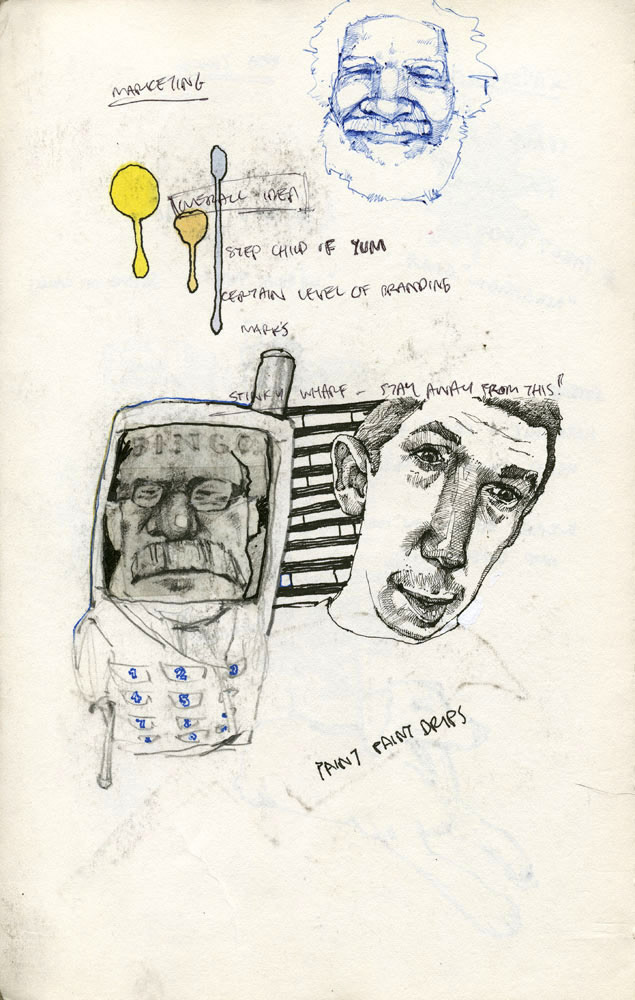 MARKETING
OVERALL IDEA
STEP CHILD OF YUM
CERTAIN LEVEL OF BRANDING
MARK'S
STINKY WHARF – STAY AWAY FROM THIS!
BINGO
1 2 3
4 5
7 8
PAINT PAINT DRIPS